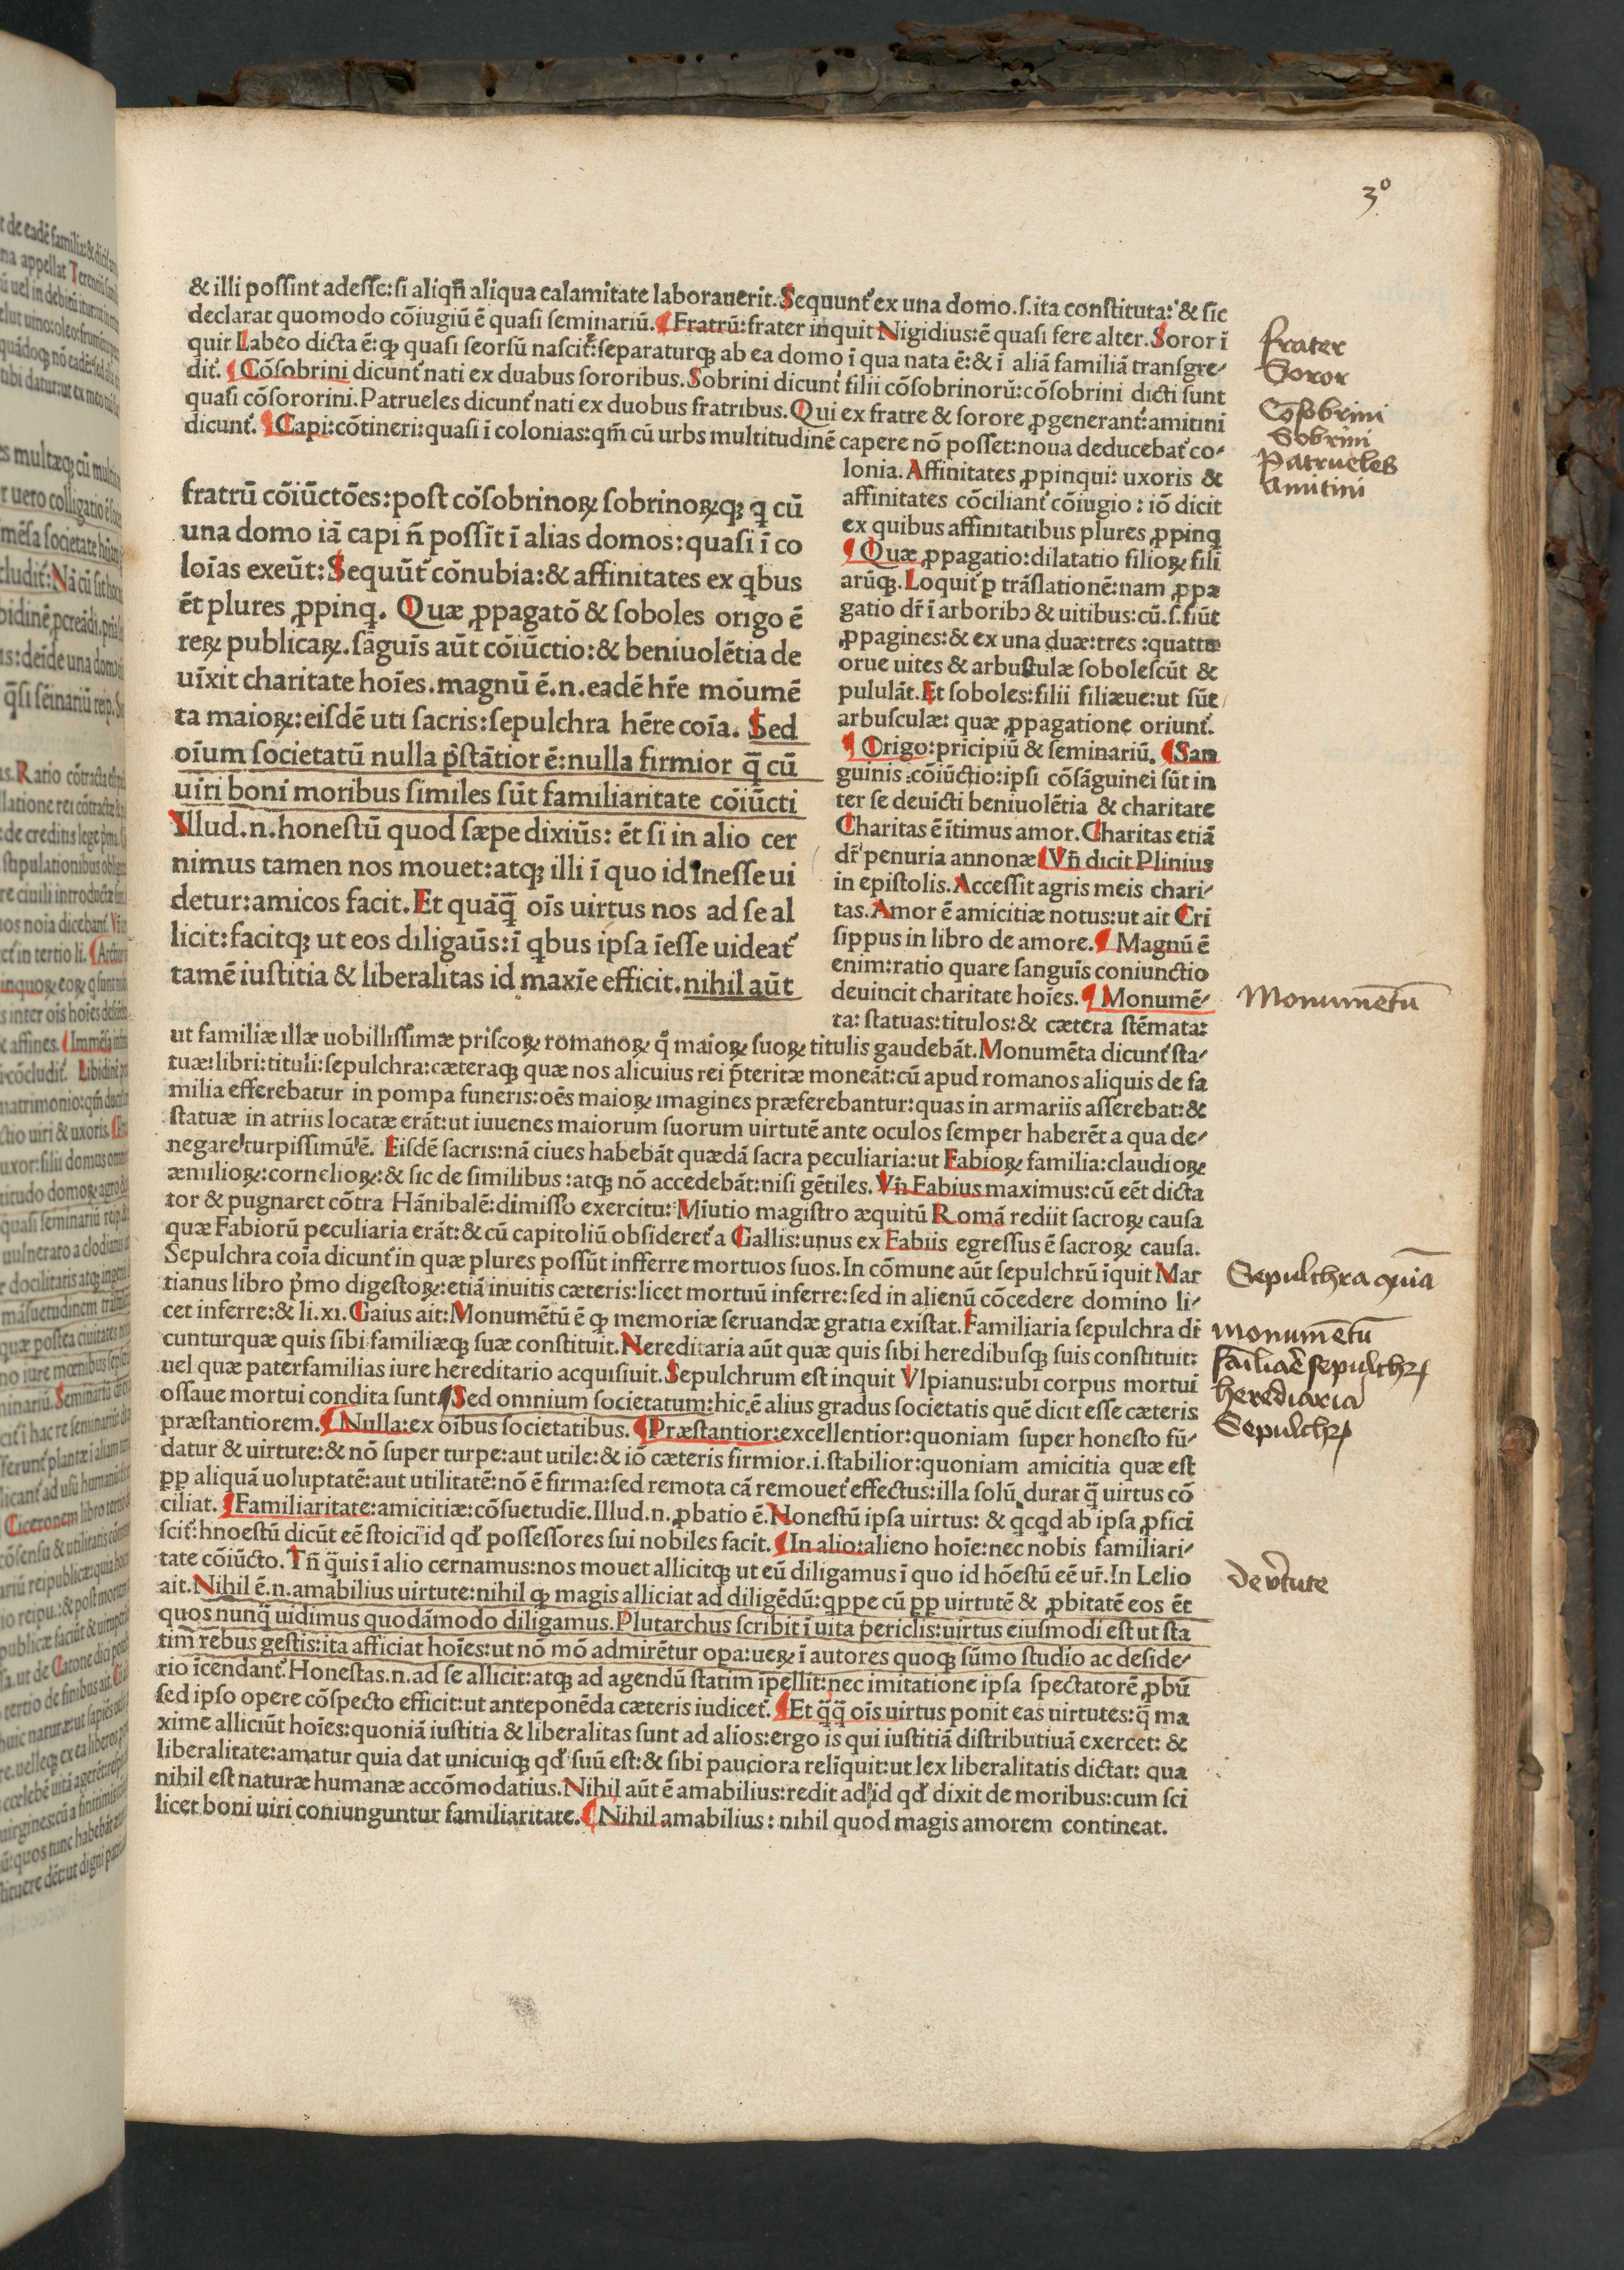 3º
& illi possint adesse: si aliqñ aliqua calamitate laborauerit. Sequunt᷑ ex una domo .s. ita constituta: & sic
declarat quomodo cõiugiũ ē quasi seminariũ. ¶ Fratrũ: frater inquit Nigidius: ē quasi fere alter. Soror ī
quit Labeo dicta ē: ꝙ quasi seorsũ nascit᷑: separaturqꝫ ab ea domo ī qua nata ē: & ī aliã familiã transgre-
dit᷑. ¶ Cõsobrini dicunt᷑ nati ex duabus sororibus. Sobrini dicunt᷑ filii cõsobrinorũ: cõsobrini dicti sunt
quasi cõsororini. Patrueles dicunt᷑ nati ex duobus fratribus. Qui ex fratre & sorore ꝓgenerant᷑: amitini
dicunt᷑. ¶ Capi: cõtineri: quasi ī colonias: qm̃ cũ urbs multitudinē capere nõ posset: noua deducebat᷑ co-
frater
Soror
Cõsobrini
Sobrini
Patrueles
Amitini
fratrũ cõiũctões: post cõsobrinoꝝ sobrinoꝝqꝫ ꝗ cũ
una domo iã capi ñ possīt ī alias domos: quasi ī co
loīas exeũt: Sequũt᷑ cõnubia: & affinitates ex ꝗbus
ēt plures ꝓpinꝗ. Quæ ꝓpagatõ & soboles origo ē
reꝝ publicaꝝ. sãguīs aũt cõiũctio: & beniuolētia de
uīxit charitate hoīes. magnũ ē .n. eadē hr̃e moumē
ta maioꝝ: eisdē uti sacris: sepulchra hēre coīa. Sed
oīum societatũ nulla p̃stãtior ē: nulla firmior q̄ cũ
uiri boni moribus similes sũt familiaritate cõiũcti
Illud .n. honestũ quod sæpe dixiũs: ēt si in alio cer
nimus tamen nos mouet: atqꝫ illi ī quo id inesse ui
detur: amicos facit. Et quãq̄ oīs uirtus nos ad se al
licit: facitqꝫ ut eos diligaũs: ī ꝗbus ipsa īesse uideat᷑
tamē iustitia & liberalitas id maxīe efficit. nihil aũt
lonia. Affinitates ꝓpinqui: uxoris &
affinitates cõciliant᷑ cõiugio: iõ dicit
ex quibus affinitatibus plures ꝓpinꝗ
¶ Quæ ꝓpagatio: dilatatio filioꝝ fili
arũqꝫ. Loquit᷑ ꝑ trãslationē: nam ꝓpa
gatio dr̃ ī arboribꝰ & uitibus: cũ .s. fiũt
ꝓpagines: & ex una duæ: tres: quattu
orue uites & arbustulæ sobolescũt &
pululãt. Et soboles: filii filiæue: ut sũt
arbusculæ: quæ ꝓpagatione oriunt᷑.
¶ Origo: pricipiũ & seminariũ. ¶ San
guinis cõiũctio: ipsi cõsãguinei sũt in
ter se deuīcti beniuolētia & charitate
Charitas ē ītimus amor. Charitas etiã
dr̃ penuria annonæ ¶ Vñ dicit Plinius
in epistolis. Accessit agris meis chari-
tas. Amor ē amicitiæ notus: ut ait Cri
sippus in libro de amore. ¶ Magnũ ē
enim: ratio quare sanguīs coniunctio
deuincit charitate hoīes. ¶ Monumē-
ta: statuas: titulos: & cætera stēmata:
Monumētū
ut familiæ illæ nobillissimæ priscoꝝ romanoꝝ q̃ maioꝝ suoꝝ titulis gaudebãt. Monumēta dicunt᷑ sta-
tuæ: libri: tituli: sepulchra: cæteraqꝫ quæ nos alicuius rei p̃teritæ moneãt: cũ apud romanos aliquis de fa
milia efferebatur in pompa funeris: oēs maioꝝ imagines præferebantur: quas in armariis asserebat: &
statuæ in atriis locatæ erãt: ut iuuenes maiorum suorum uirtutē ante oculos semper haberēt a qua de-
negare turpissimũ ē. Eisdē sacris: nã ciues habebãt quædã sacra peculiaria: ut Fabioꝝ familia: claudioꝝ
æmilioꝝ: cornelioꝝ: & sic de similibus: atqꝫ nõ accedebãt: nisi gētiles. Vñ Fabius maximus: cũ eēt dicta
tor & pugnaret cõtra Hãnibalē: dimisso exercitu: Miutio magistro æquitũ Romã rediit sacroꝝ causa
quæ Fabiorũ peculiaria erãt: & cũ capitoliũ obsideret᷑ a Gallis: unus ex Fabiis egressus ē sacroꝝ causa.
Sepulchra coīa dicunt᷑ in quæ plures possũt infferre mortuos suos. In cõmune aũt sepulchrũ īquit Mar
tianus libro p̃mo digestoꝝ: etiã inuitis cæteris: licet mortuũ inferre: sed in alienũ cõcedere domino li-
cet inferre: & li. xi. Gaius ait: Monumētũ ē ꝙ memoriæ seruandæ gratia existat. Familiaria sepulchra di
cunturquæ quis sibi familiæqꝫ suæ constituit. Nereditaria aũt quæ quis sibi heredibusqꝫ suis constituit:
uel quæ paterfamilias iure hereditario acquisiuit. Sepulchrum est inquit Vlpianus: ubi corpus mortui
ossaue mortui condita sunt. ¶ Sed omnium societatum: hic ē alius gradus societatis quē dicit esse cæteris
præstantiorem. ¶ Nulla: ex oībus societatibus. ¶ Præstantior: excellentior: quoniam super honesto fũ-
datur & uirtute: & nõ super turpe: aut utile: & iõ cæteris firmior .i. stabilior: quoniam amicitia quæ est
ꝑꝑ aliquã uoluptatē: aut utilitatē: nõ ē firma: sed remota cã remouet᷑ effectus: illa solũ durat q̃ uirtus cõ
ciliat. ¶ Familiaritate: amicitiæ: cõsuetudīe. Illud .n. ꝓbatio ē. Nonestũ ipsa uirtus: & ꝗcꝗd ab ipsa ꝓfici
scit᷑: hnoestũ dicũt eē stoici id qd̃ possessores sui nobiles facit. ¶ In alio: alieno hoīe: nec nobis familiari-
tate cõiũcto. Tñ q̃uis ī alio cernamus: nos mouet allicitqꝫ ut eũ diligamus ī quo id hõestũ eē ur̃. In Lelio
ait. Nihil ē .n. amabilius uirtute: nihil ꝙ magis alliciat ad diligēdũ: ꝗppe cũ ꝑꝑ uirtutē & ꝓbitatē eos ēt
quos nunq̃ uidimus quodãmodo diligamus. Plutarchus scribit ī uita periclis: uirtus eiusmodi est ut sta
tim rebus gestis: ita afficiat hoīes: ut nõ mõ admirētur oꝑa: ueꝝ ī autores quoqꝫ sũmo studio ac deside-
rio īcendant᷑. Honestas .n. ad se allicit: atqꝫ ad agendũ statim īpellit: nec imitatione ipsa spectatorē ꝓbũ
sed ipso opere cõspecto efficit: ut anteponēda cæteris iudicet᷑. ¶ Et q̃q̃ oīs uirtus ponit eas uirtutes: q̃ ma
xime alliciũt hoīes: quoniã iustitia & liberalitas sunt ad alios: ergo is qui iustitiã distributiuã exercet: &
liberalitate: amatur quia dat unicuiqꝫ qd̃ suũ est: & sibi pauciora reliquit: ut lex liberalitatis dictat: qua
nihil est naturæ humanæ accõmodatius. Nihil aũt ē amabilius: redit ad id qd̃ dixit de moribus: cum sci
licet boni uiri coniunguntur familiaritate. ¶ Nihil amabilius: nihil quod magis amorem contineat.
Sepulchra quia
Monumētū
herediaria
Sepulchꝝ
de v̄tute